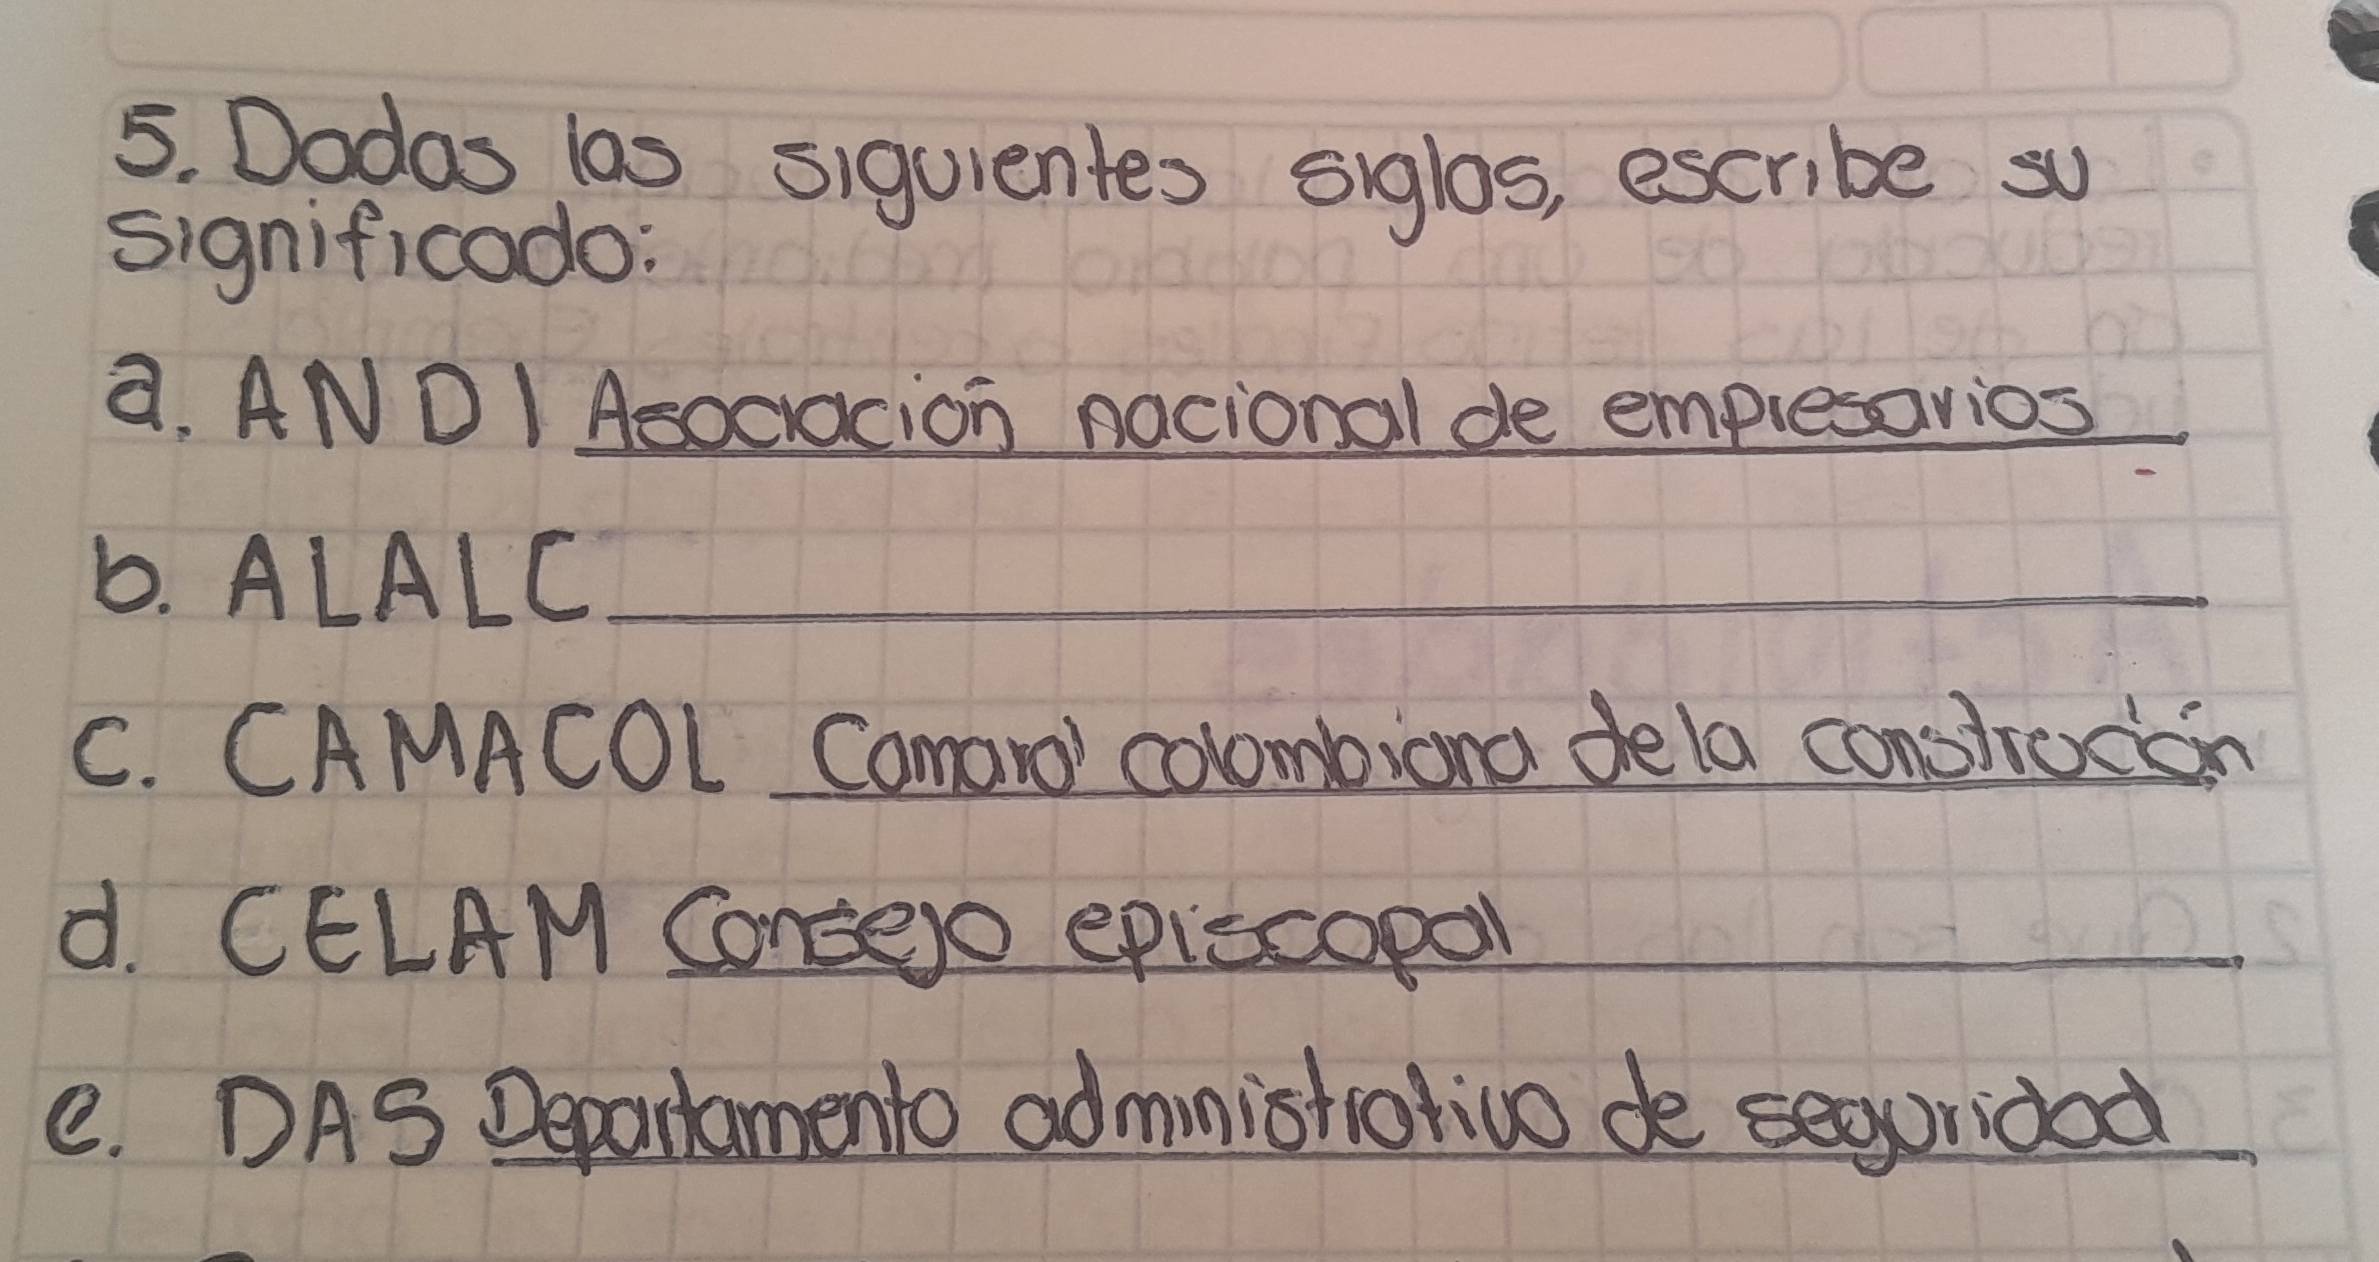 5. Dadas las siguientes siglas, escribe su
significado:
a. ANDI Asociación nacional de empresarios
b. ALALC
c. CAMACOL Camara colombiana de la construcción
d. CELAM Consejo episcopal
e. DAS Departamento administrativo de seguridad